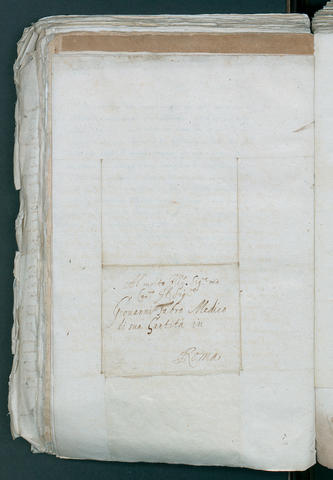 Al molto Ill.re Sig.re mio
Giovanni Fabro Medico
di sua Santità in
Roma